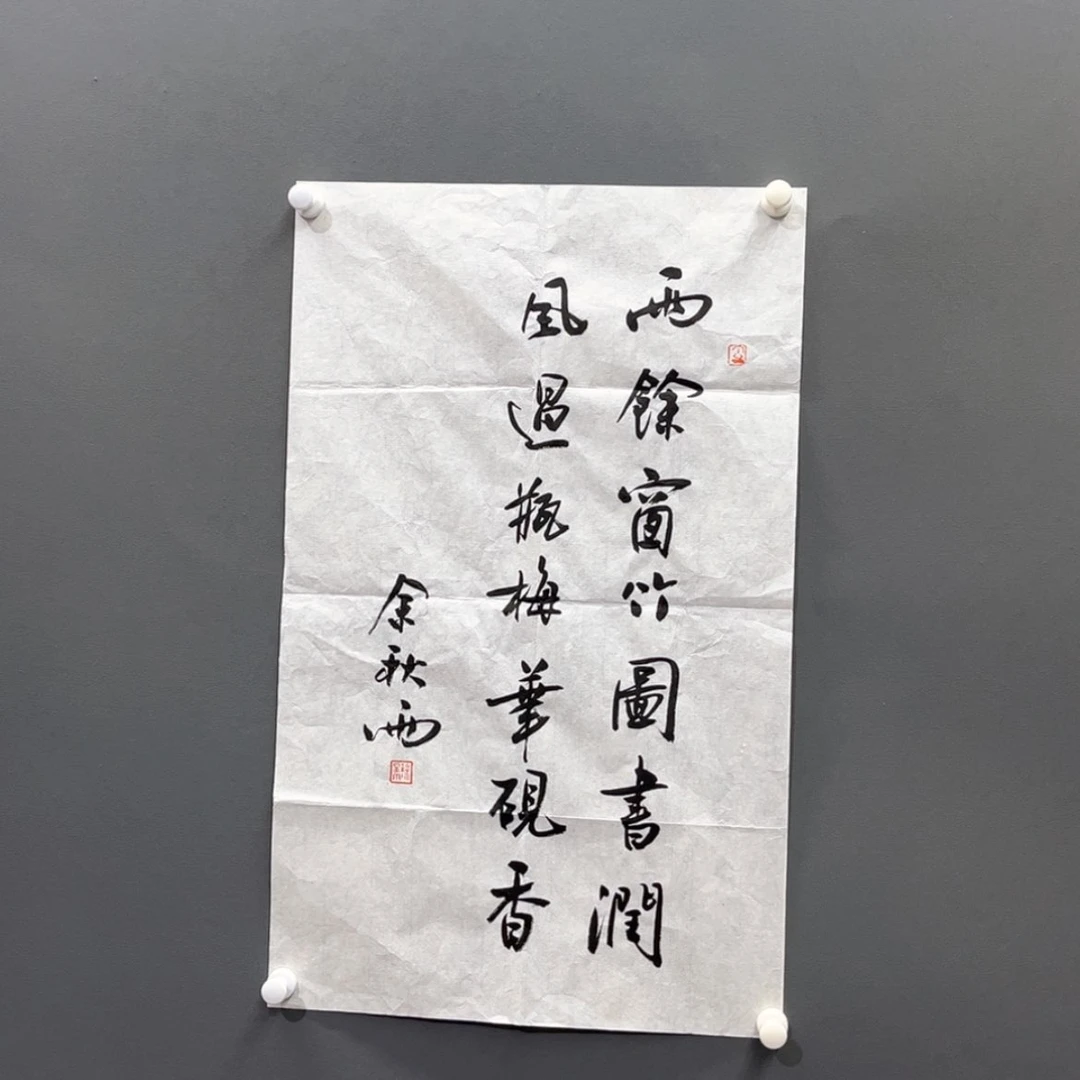 雨餘窗竹圖書潤
風過瓶梅華硯香
余秋雨